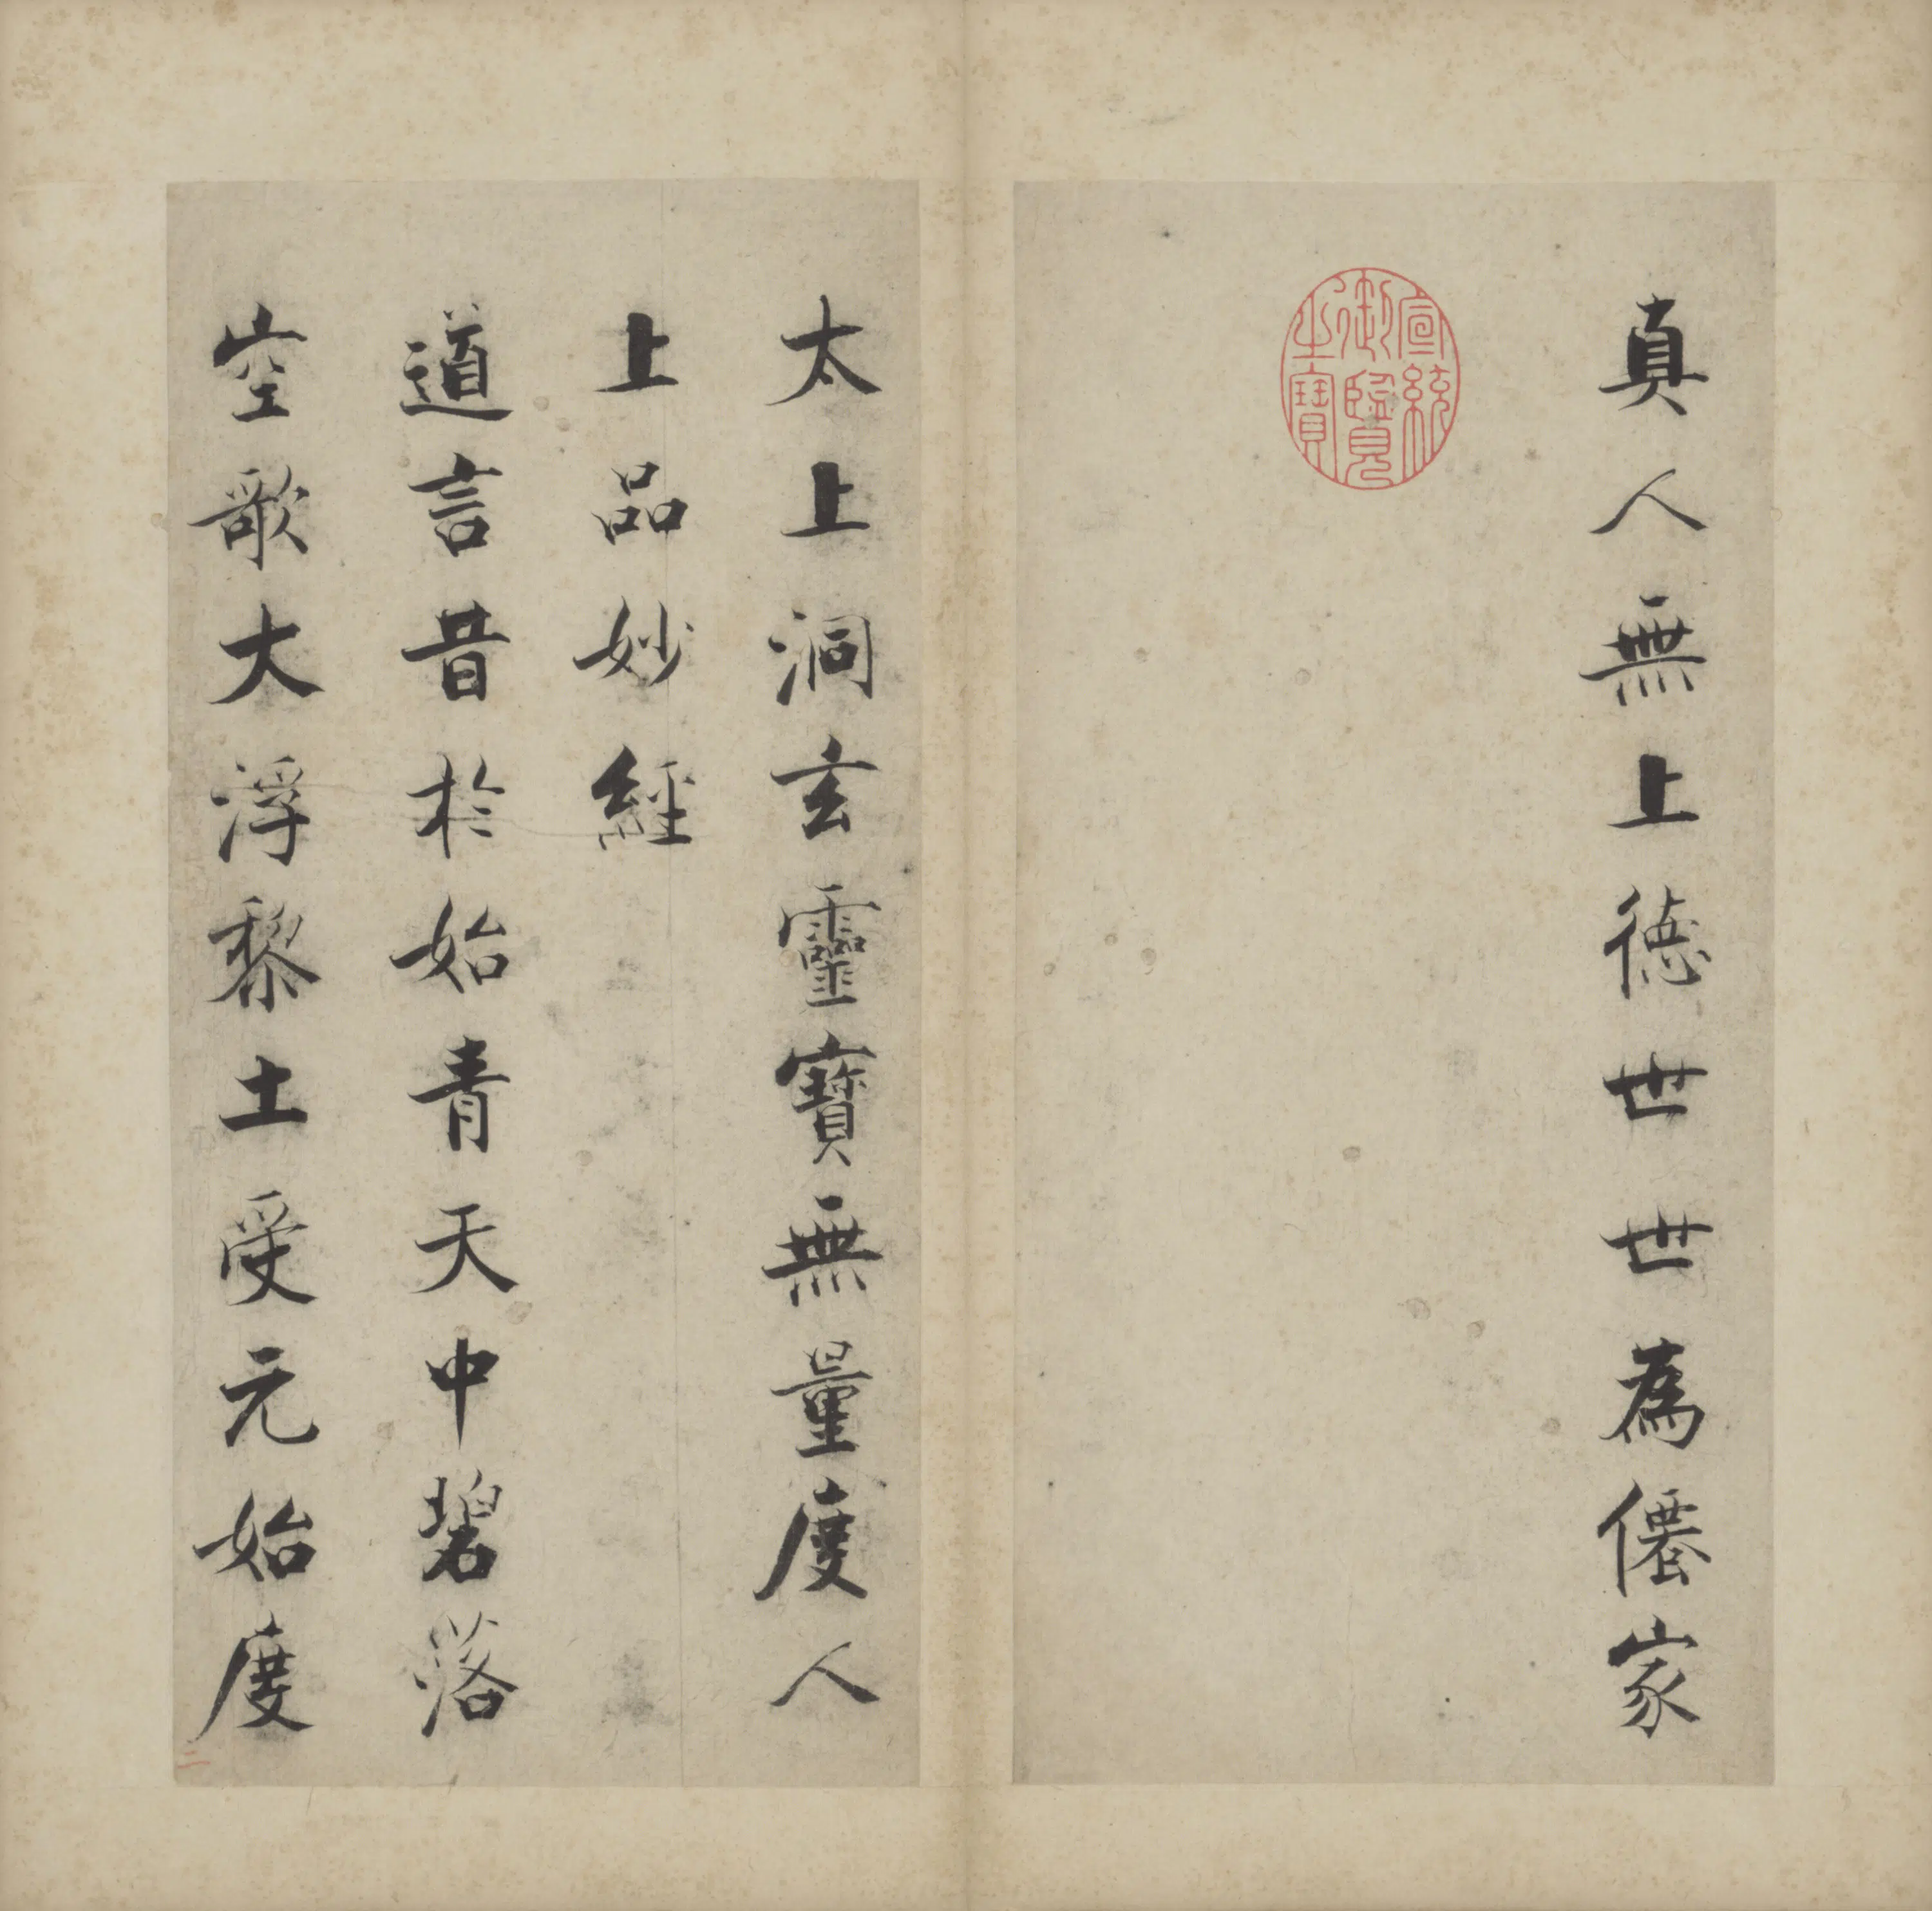 真人無上德世世為僊家
宣統御覽之寶
太上洞玄靈寶無量度人
上品妙經
道言昔於始青天中碧落
空歌大浮黎土受元始度
二